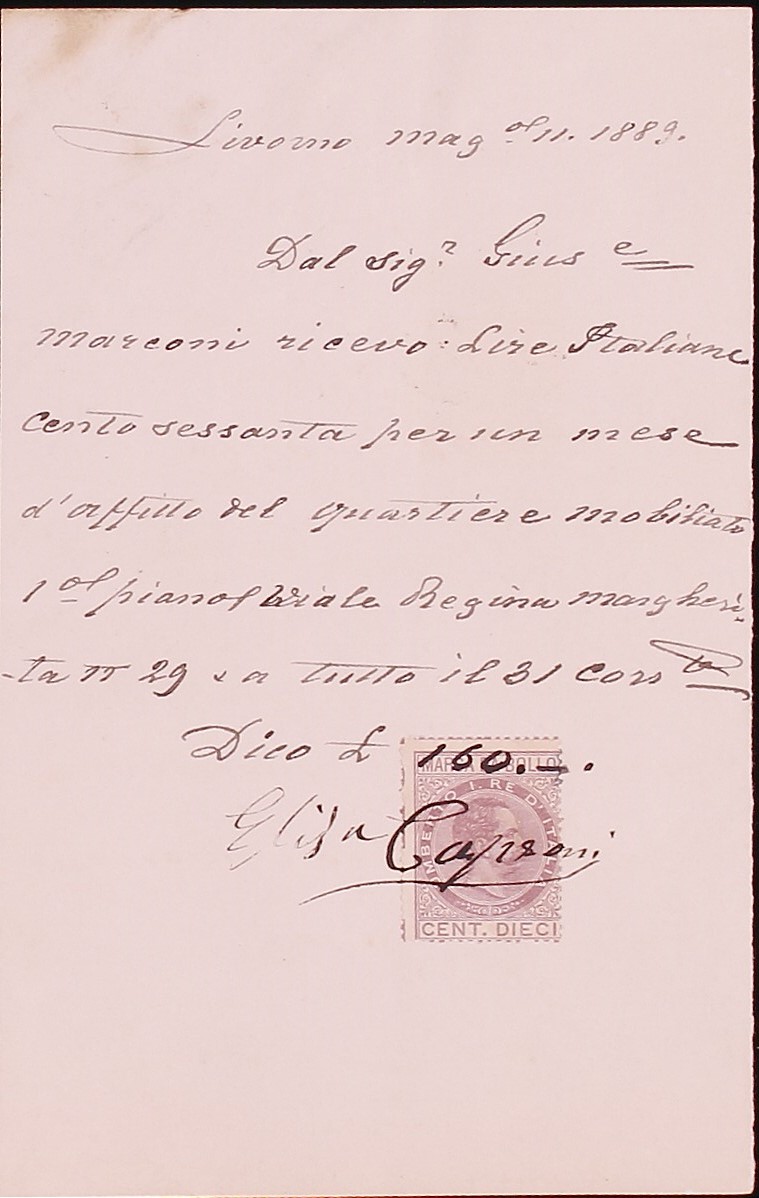 Livorno Mag.º 11. 1889.
Dal Sig.r Gius e
Marconi ricevo: Lire Italiane
cento sessanta per un mese
d'affitto del quartiere mobiliato
1º piano Viale Regina Margheri-
-ta nº 29 a tutto il 31 corr
Dico £ 160.—.
MARCA DA BOLLO
UMBERTO I. RE D'ITALIA
Elisa Caproni
CENT. DIECI